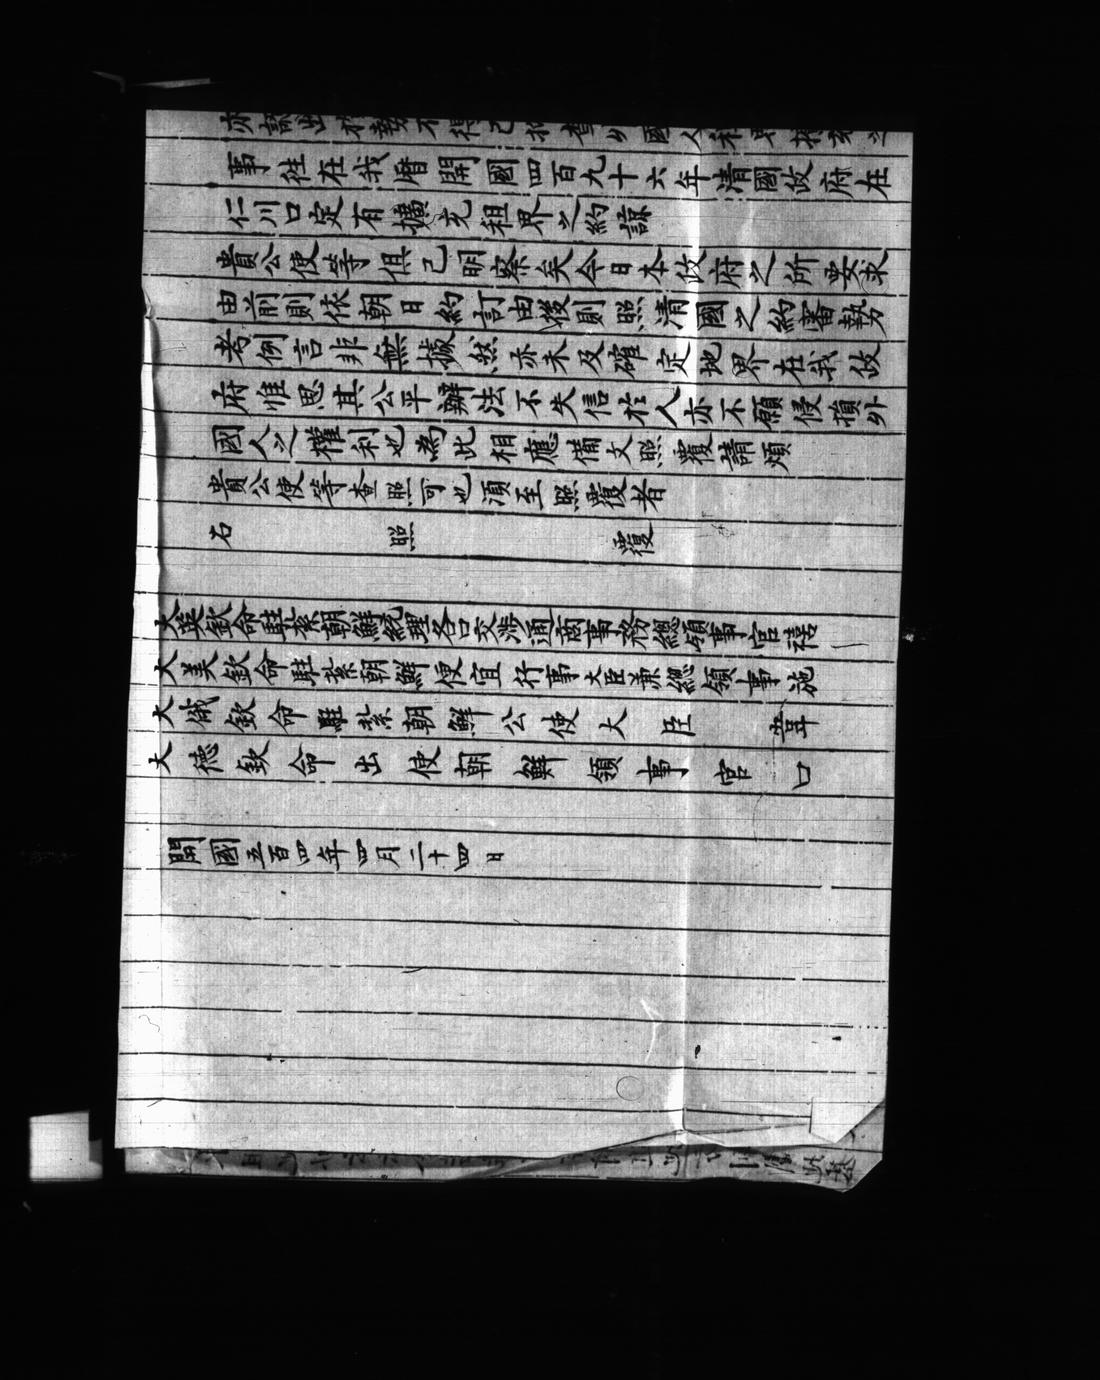 事往在我曆開國四百九十六年清國政府在
仁川口定有擴充租界之約諒
貴公使等俱已明察矣今日本政府之所要求
由前則依朝日約訂由後則照清國之約審勢
考例言非無據然亦未及確定地界在我政
府惟思其公平辦法不失信於人亦不願侵損外
國人之權利也為此相應備文照覆請煩
貴公使等查照可也須至照覆者
右照覆
大英欽命駐紮朝鮮統理各口交涉通商事務總領事官禧
大美欽命駐紮朝鮮便宜行事大臣兼總領事施
大俄欽命駐紮朝鮮公使大臣韋
大德欽命出使朝鮮領事官口
開國五百四年四月二十四日